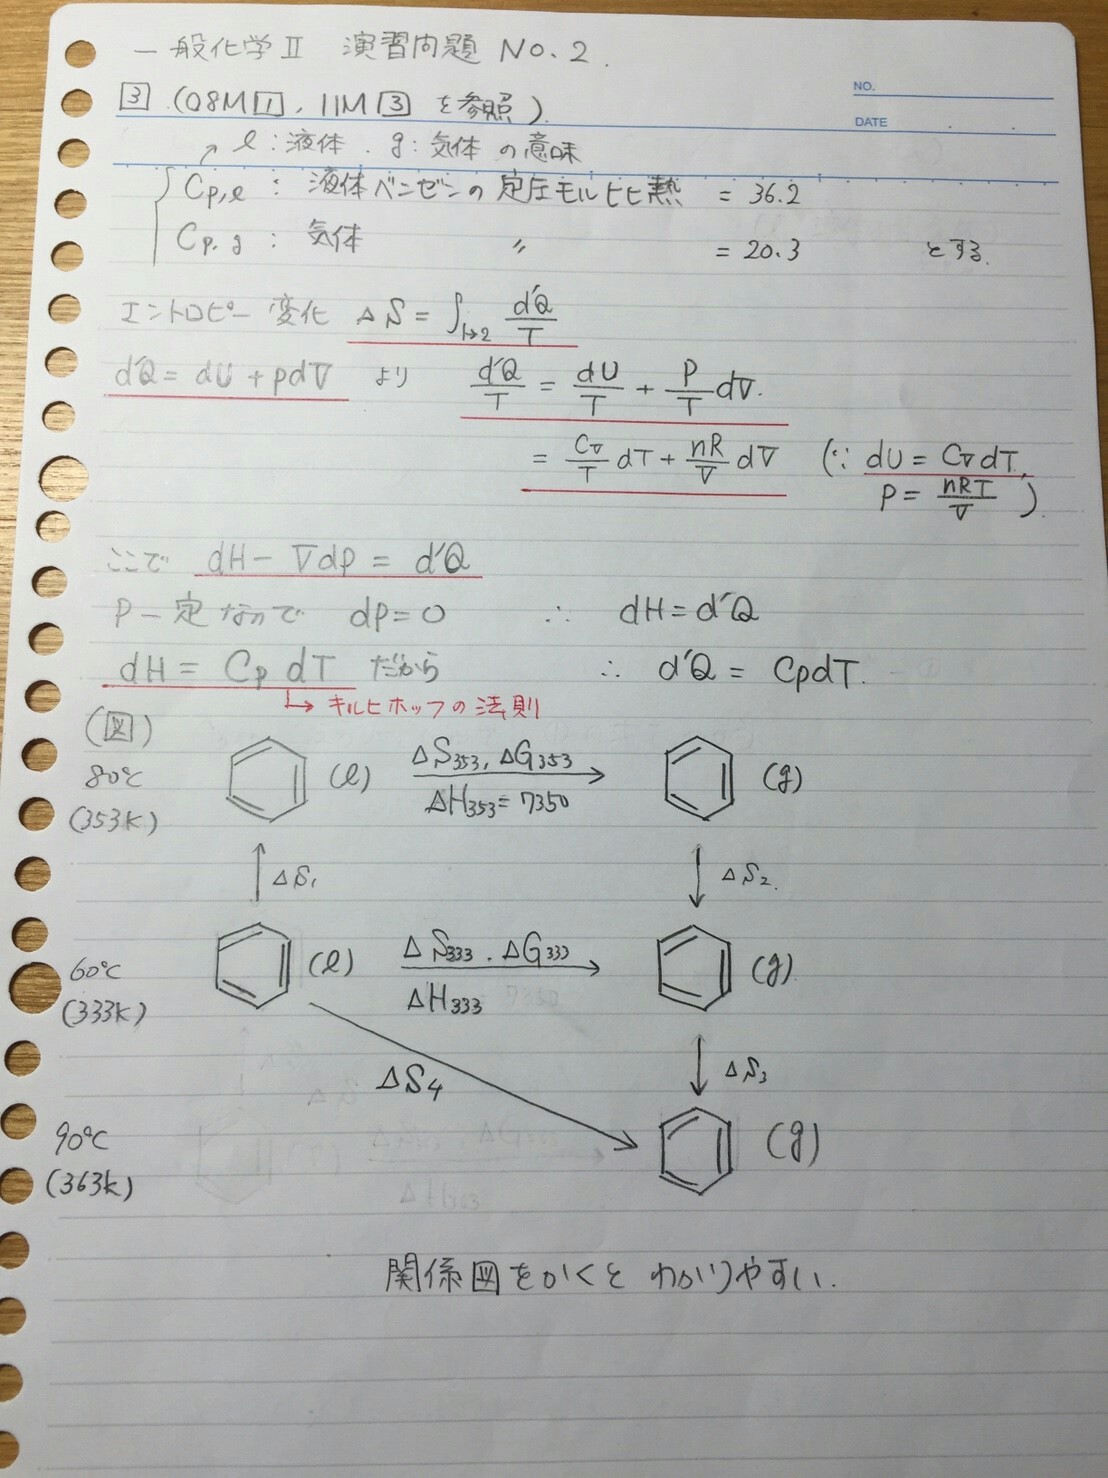 一般化学Ⅱ 演習問題 NO.2.
NO.
③ (08M①, 11M③ を参照).
DATE
↗ l:液体, g:気体 の意味
Cp,l : 液体ベンゼンの定圧モル比熱 = 36.2
Cp,g : 気体 〃 = 20.3 とする.
エントロピー変化 ΔS = ∫1→2 d'Q/T
d'Q = dU + pdV より d'Q/T = dU/T + P/T dV.
= Cv/T dT + nR/V dV (∵ dU = CvdT,
P = nRT/V ).
ここで dH - Vdp = d'Q
P一定なので dp=0 ∴ dH=d'Q
dH = Cp dT だから ∴ d'Q = CpdT.
↳ キルヒホッフの法則
(図)
80℃ (l) ΔS353, ΔG353 (g)
(353K) ΔH353=7350
↑ΔS1 ↓ΔS2.
60℃ (l) ΔS333. ΔG333 (g)
(333K) ΔH333
ΔS4 ↓ΔS3
90℃ (g)
(363K)
関係図をかくと わかりやすい.